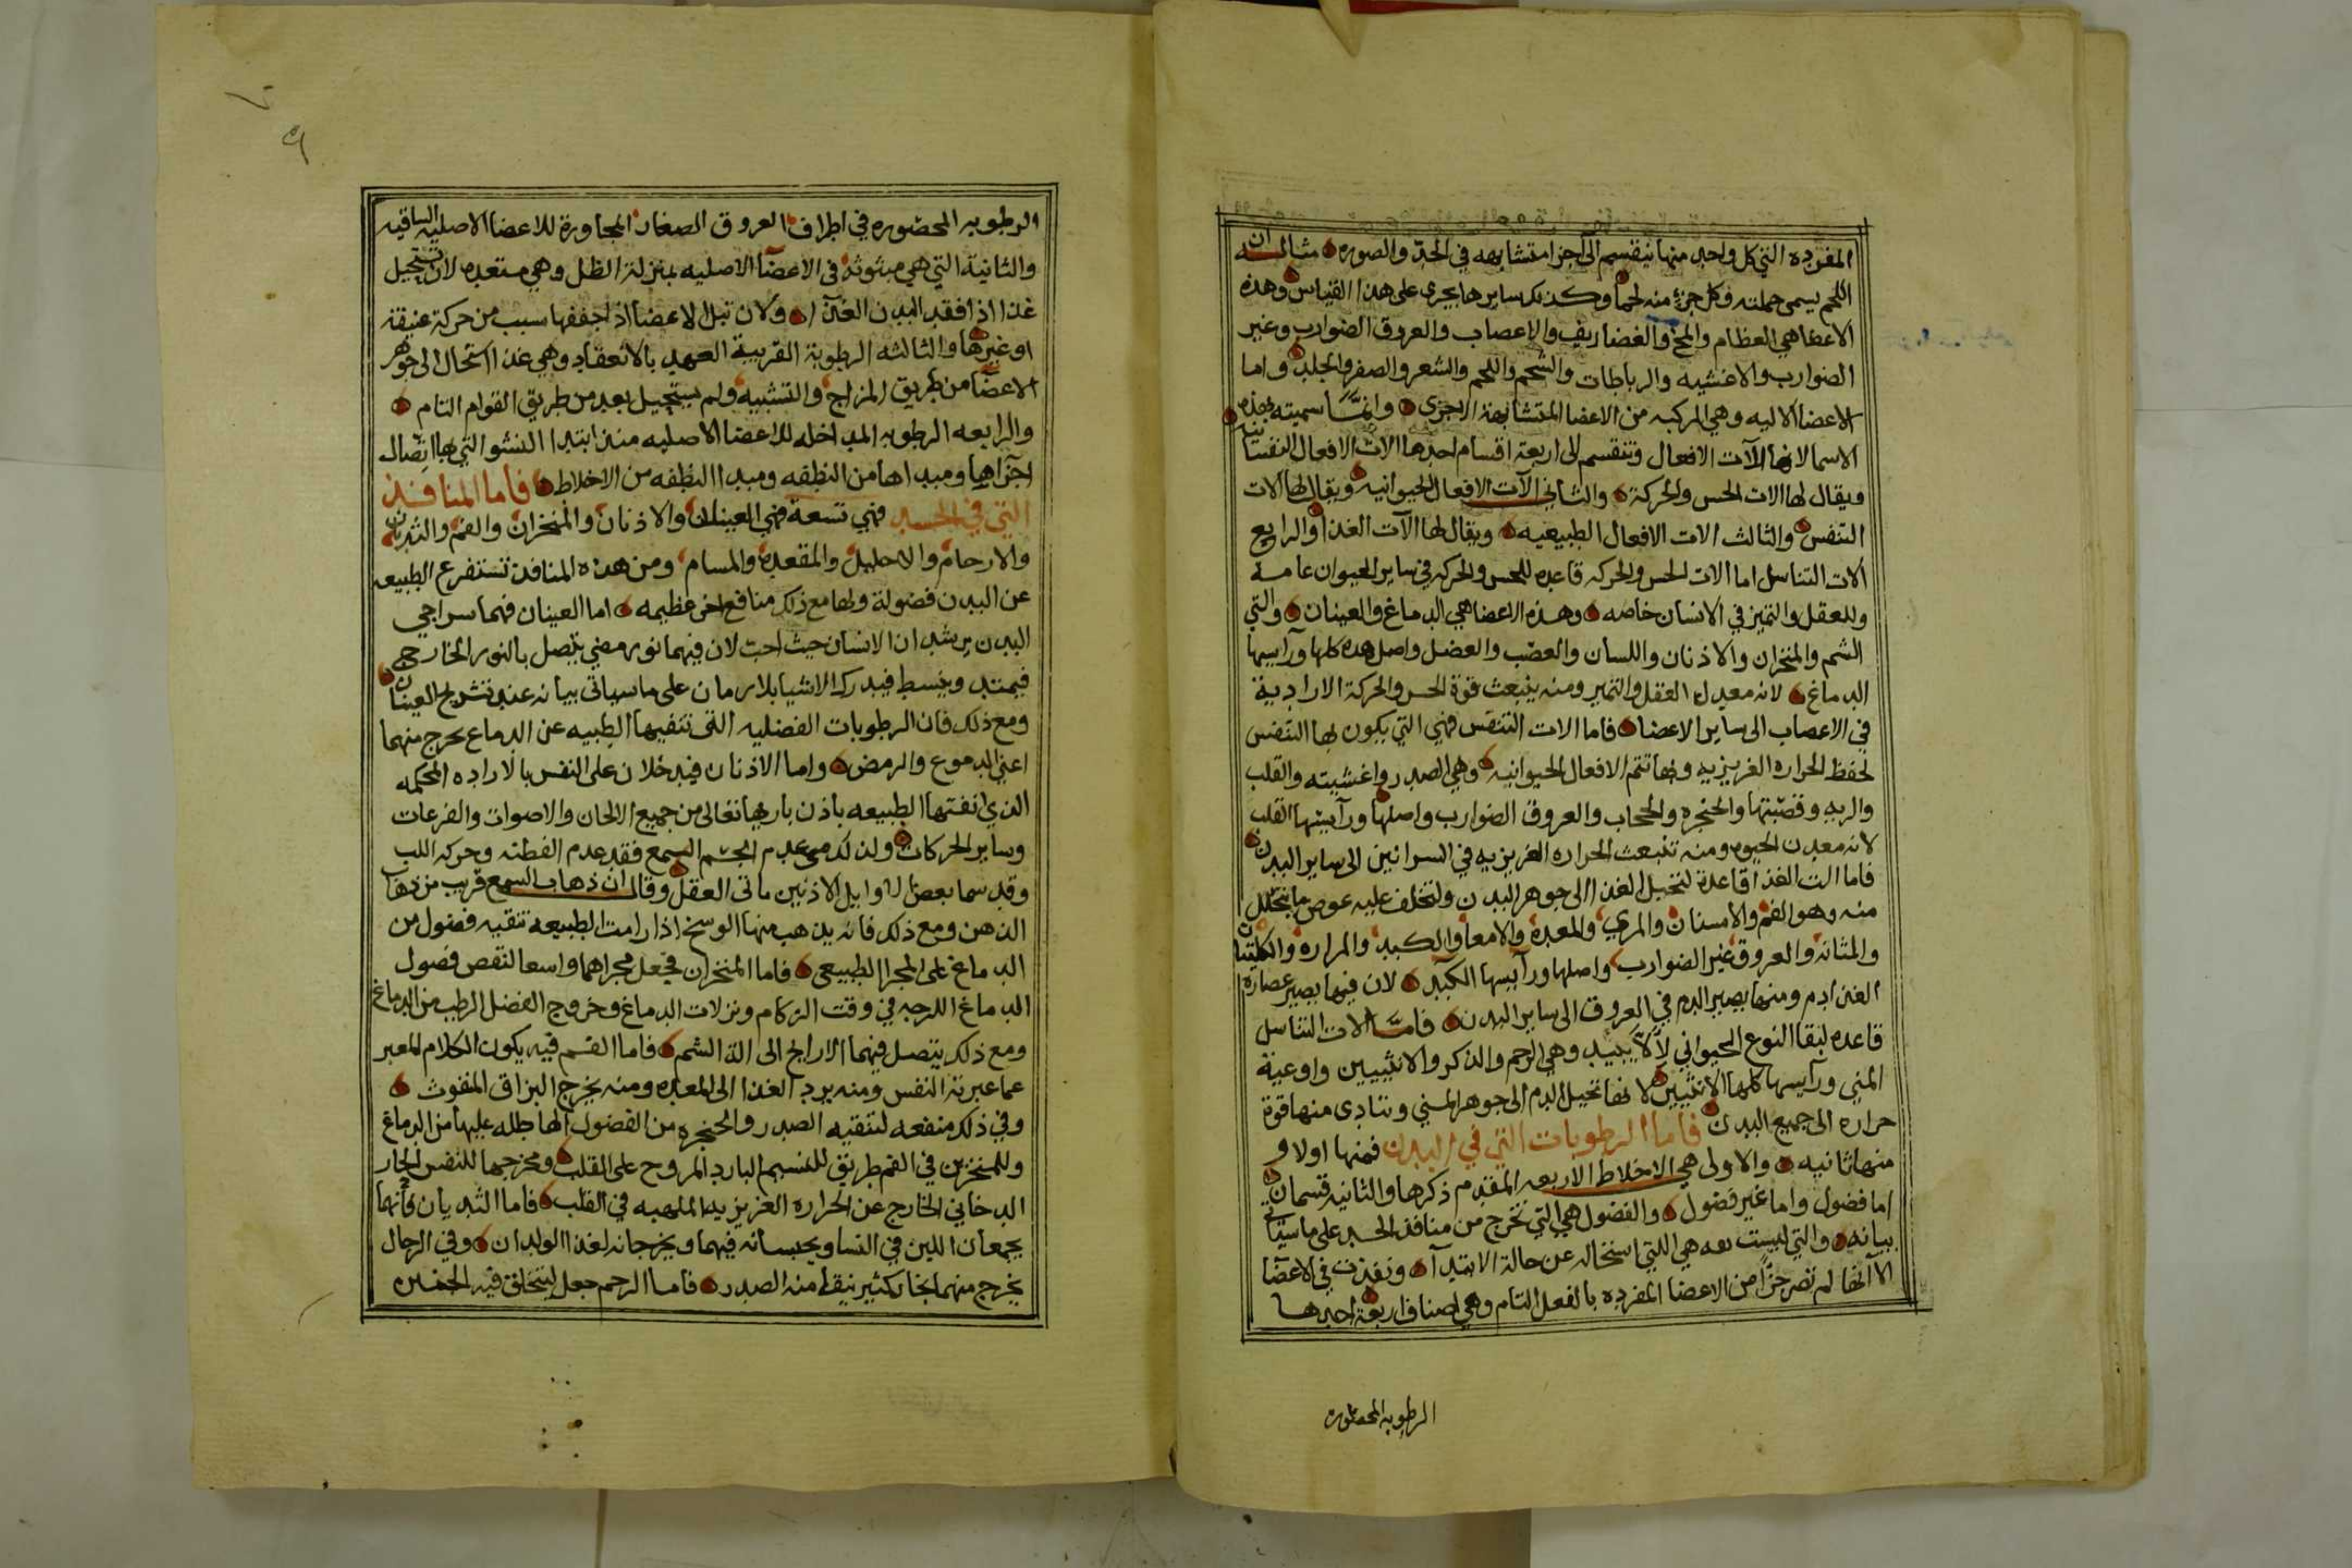 المفرده التي كل واحد منها ينقسم الى اجزا متشابهه في الحد والصوره مثاله ان
اللحم يسمى جملته وكل جزء منه لحما وكذلك سايرها يجري على هذا القياس وهذه
الاعضا هي العظام والمخ والغضاريف والاعصاب والعروق الضوارب وغير
الضوارب والاغشيه والرباطات والشحم واللحم والشعر والصفر والجلد واما
الاعضا الاليه وهي المركبه من الاعضا المتشابهة الاجزى وانما سميته بهذه
الاسما لانها الآت الافعال وتنقسم الى اربعة اقسام احدها الات الافعال النفسانيه
ويقال لها الات الحس والحركة والثاني الآت الافعال الحيوانيه ويقال لها الات
التنفس والثالث الات الافعال الطبيعيه ويقال لها الآت الغذا والرابع
الات التناسل اما الات الحس والحركه قاعده للحس والحركه في ساير الحيوان عامه
وللعقل والتميز في الانسان خاصه وهذه الاعضا هي الدماغ والعينان والتي
الشم والمنخران والاذنان واللسان والعصب والعضل واصل هذه كلها ورأسها
الدماغ لانه معدن العقل والتميز ومنه ينبعث قوة الحس والحركة الارادية
في الاعصاب الى ساير الاعضا فاما الات التنفس فهي التي يكون لها التنفس
لحفظ الحراره الغريزيه وبها تتم الافعال الحيوانيه وهي الصدر واغشيته والقلب
والريه وقصبتها والحنجره والحجاب والعروق الضوارب واصلها ورأيسها القلب
لانه معدن الحيوه ومنه تنبعث الحراره الغريزيه في السرائين الى ساير البدن
فاما الت الغذا قاعدة لتحيل الغذا الى جوهر البدن ولتخلف عليه عوض ما يتحلل
منه وهو الفم والاسنان والمري والمعده والامعا والكبد والمراره والكليتان
والمثانه والعروق غير الضوارب واصلها ورأيسها الكبد لان فيها يصير عصاره
الغذا دم ومنها يصير الدم في العروق الى ساير البدن فاما الات التناسل
قاعده لبقا النوع الحيواني لألا يبيد وهي الرحم والذكر والانثيين واوعية
المني ورأيسها كلها الانثيين لانها تحيل الدم الى جوهر المني وتتادى منها قوة
حراره الى جميع البدن فاما الرطوبات التي في البدن فمنها اولا و
منها ثانيه والاولى هي الاخلاط الاربعه المقدم ذكرها والثانيه قسمان
اما فضول واما غير فضول والفضول هي التي تخرج من منافذ الجسد على ما سيأتي
بيانه والتي ليست هي اللتي استحاله عن حالة الابتدآ ونفذت في الاعضآ
الا انها لم تصر جزأ من الاعضا المفرده بالفعل التام وهي اصناف اربعة احدها
الرطوبه المحصوره
الرطوبه المحصوره في اطراف العروق الصغار المجاورة للاعضا الاصليه الساقيه
والثانية التي هي مبثوثه في الاعضآ الاصليه بمنزلة الظل وهي مستعده لان تستحيل
غذا اذا فقد البدن الغذا ولان تبل الاعضا اذا جففها سبب من حركة عنيفة
او غيرها والثالثه الرطوبة القريبة العهد بالانعقاد وهي غذا استحال الى جوهر
الاعضآ من طريق المزاج والتشبيه ولم يستحيل بعد من طريق القوام التام
والرابعه الرطوبه المداخله للاعضا الاصليه منذ ابتدا النشو التي بها اتصال
اجزاها ومبداها من النطفه ومبدا النطفه من الاخلاط فاما المنافذ
التي في الجسد فهي تسعة فهي العينان والاذنان والمنخران والفم والثديان
والارحام والاحليل والمقعده والمسام ومن هذه المنافذ تستفرع الطبيعه
عن البدن فضولة ولها مع ذلك منافع اخر عظيمه اما العينان فهما سراجي
البدن يرشدان الانسان حيث احب لان فيهما نور مضي يتصل بالنور الخارجي
فيمتد وينبسط فيدرك الاشيا بلا زمان على ما سياتي بيانه عند تشريح العينان
ومع ذلك فان الرطوبات الفضليه التي تنفيها الطبيه عن الدماع يخرج منهما
اعني الدموع والرمض واما الاذنان فيدخلان على النفس بالاراده المحكمه
الذي اتقنتها الطبيعه باذن باريها تعالى من جميع الالحان والاصوات والفرعات
وساير الحركات ولذلك متى عدم الجسم السمع فقد عدم الفطنه وحركه اللب
وقد سما بعض الاوايل الاذنين ماتى العقل وقال ان ذهاب السمع قريب من ذهاب
الذهن ومع ذلك فانه يذهب منها الوسخ اذا رامت الطبيعه تنقيه فضول من
الدماغ على المجرا الطبيعى فاما المنخران فجعل مجراهما واسعا لنقص فضول
الدماغ اللزجه في وقت الزكام ونزلات الدماغ وخروج الفضل الرطب من الدماغ
ومع ذلك يتصل فيهما الارايح الى الة الشم فاما الفم فيه يكون الكلام المعبر
عما عبرته النفس ومنه يرد الغذا الى المعده ومنه يخرج البزاق المنفوث
وفي ذلك منفعه لتنقيه الصدر والحنجره من الفضول الهاطله عليها من الدماغ
وللمنخرين في الفم طريق للنسيم البارد المروح على القلب ومخرجها للنفس الحار
الدخاني الخارج عن الحراره الغريزيه الملهبه في القلب فاما الثديان فأنها
يجمعان اللبن في النسا ويحبسانه فيهما ويخرجانه لغذا الولدان وفي الرجال
يخرج منهما بخار كثير ينقا منه الصدر فاما الرحم جعل ليتخلق فيه الجنين